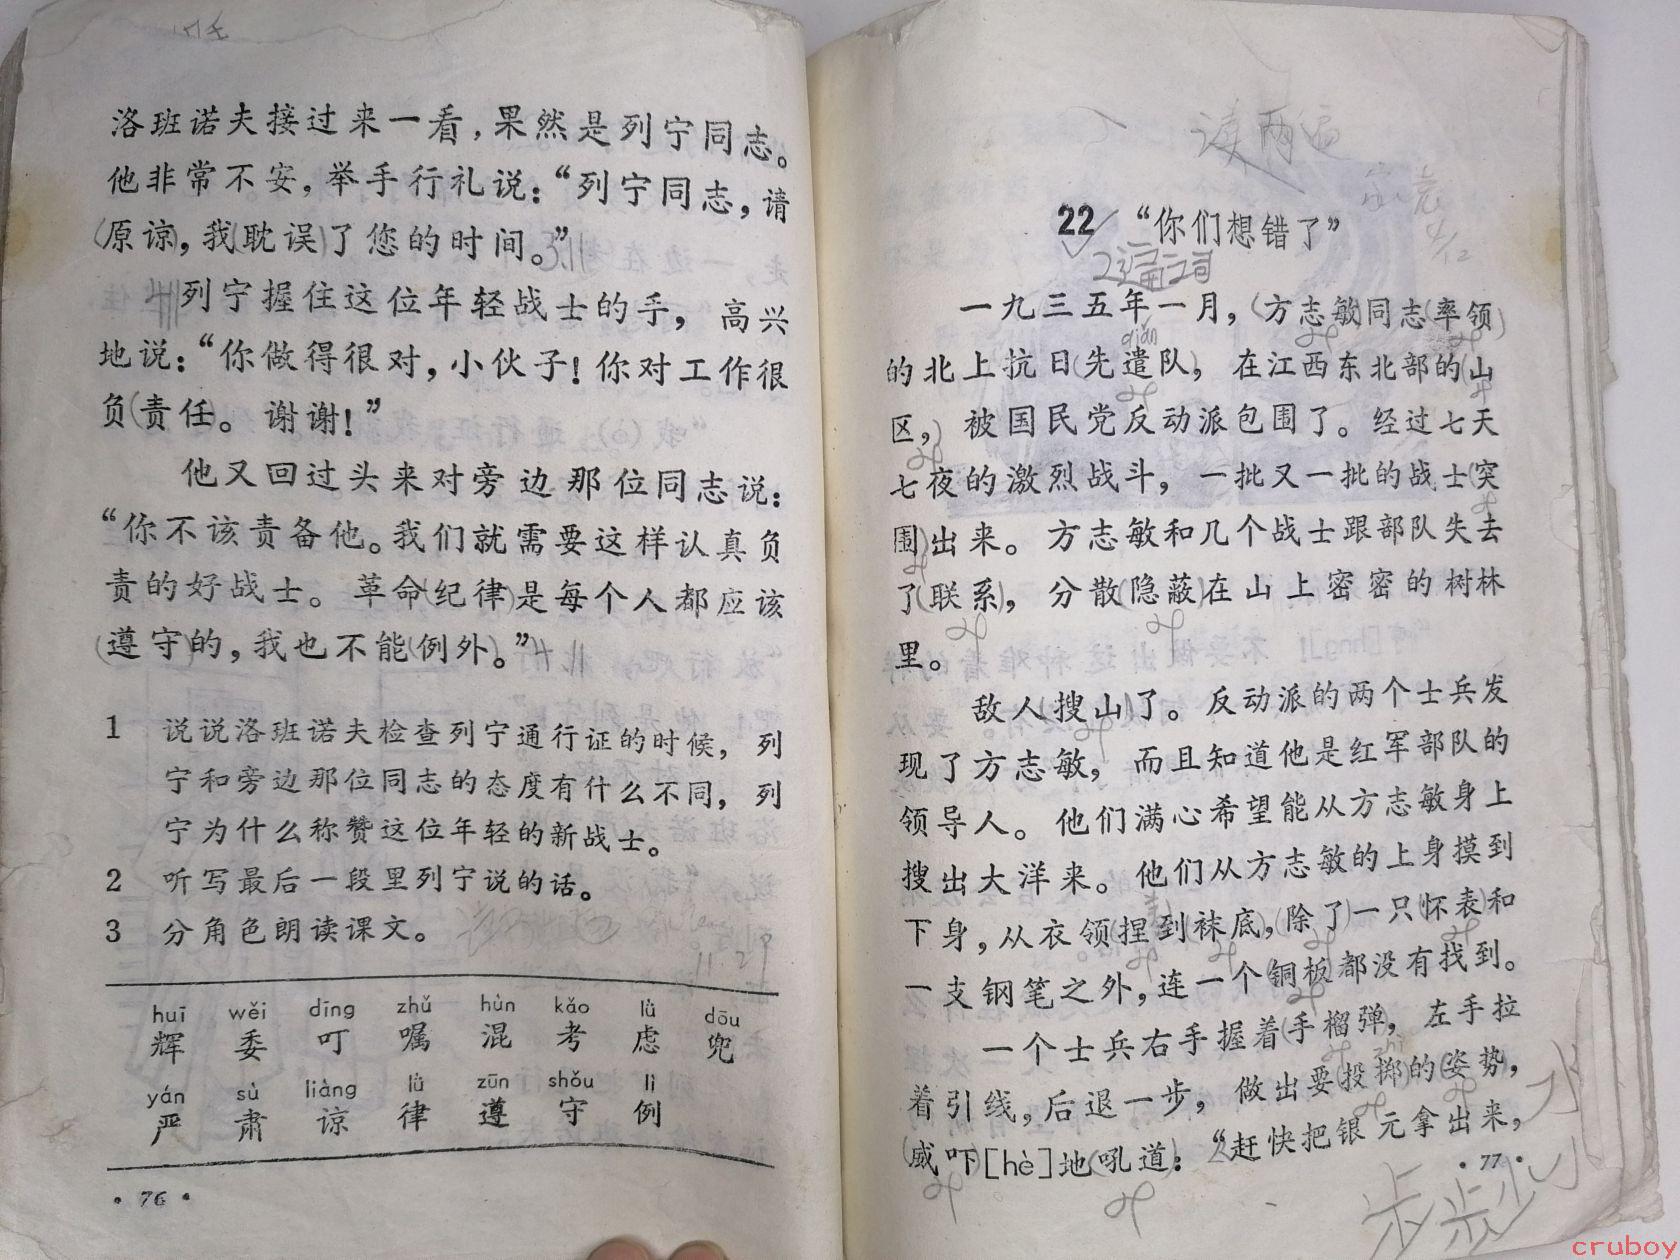 洛班诺夫接过来一看，果然是列宁同志。
他非常不安，举手行礼说：“列宁同志，请
原谅，我耽误了您的时间。”
列宁握住这位年轻战士的手，高兴
地说：“你做得很对，小伙子！你对工作很
负责任。谢谢！”
他又回过头来对旁边那位同志说：
“你不该责备他。我们就需要这样认真负
责的好战士。革命纪律是每个人都应该
遵守的，我也不能例外。”
1 说说洛班诺夫检查列宁通行证的时候，列
宁和旁边那位同志的态度有什么不同，列
宁为什么称赞这位年轻的新战士。
2 听写最后一段里列宁说的话。
3 分角色朗读课文。
11.29
huī wěi dīng zhǔ hùn kǎo lǜ dōu
辉 委 叮 嘱 混 考 虑 兜
yán sù liàng lǜ zūn shǒu lì
严 肃 谅 律 遵 守 例
·76·
读两遍
22 “你们想错了”
一九三五年一月，方志敏同志率领
qiǎn
的北上抗日先遣队，在江西东北部的山
区，被国民党反动派包围了。经过七天
七夜的激烈战斗，一批又一批的战士突
围出来。方志敏和几个战士跟部队失去
了联系，分散隐蔽在山上密密的树林
里。
敌人搜山了。反动派的两个士兵发
现了方志敏，而且知道他是红军部队的
领导人。他们满心希望能从方志敏身上
搜出大洋来。他们从方志敏的上身摸到
下身，从衣领捏到袜底，除了一只怀表和
一支钢笔之外，连一个铜板都没有找到。
一个士兵右手握着手榴弹，左手拉
zhì
着引线，后退一步，做出要投掷的姿势，
威吓[hè]地吼道：“赶快把银元拿出来，
·77·
步步
cruboy